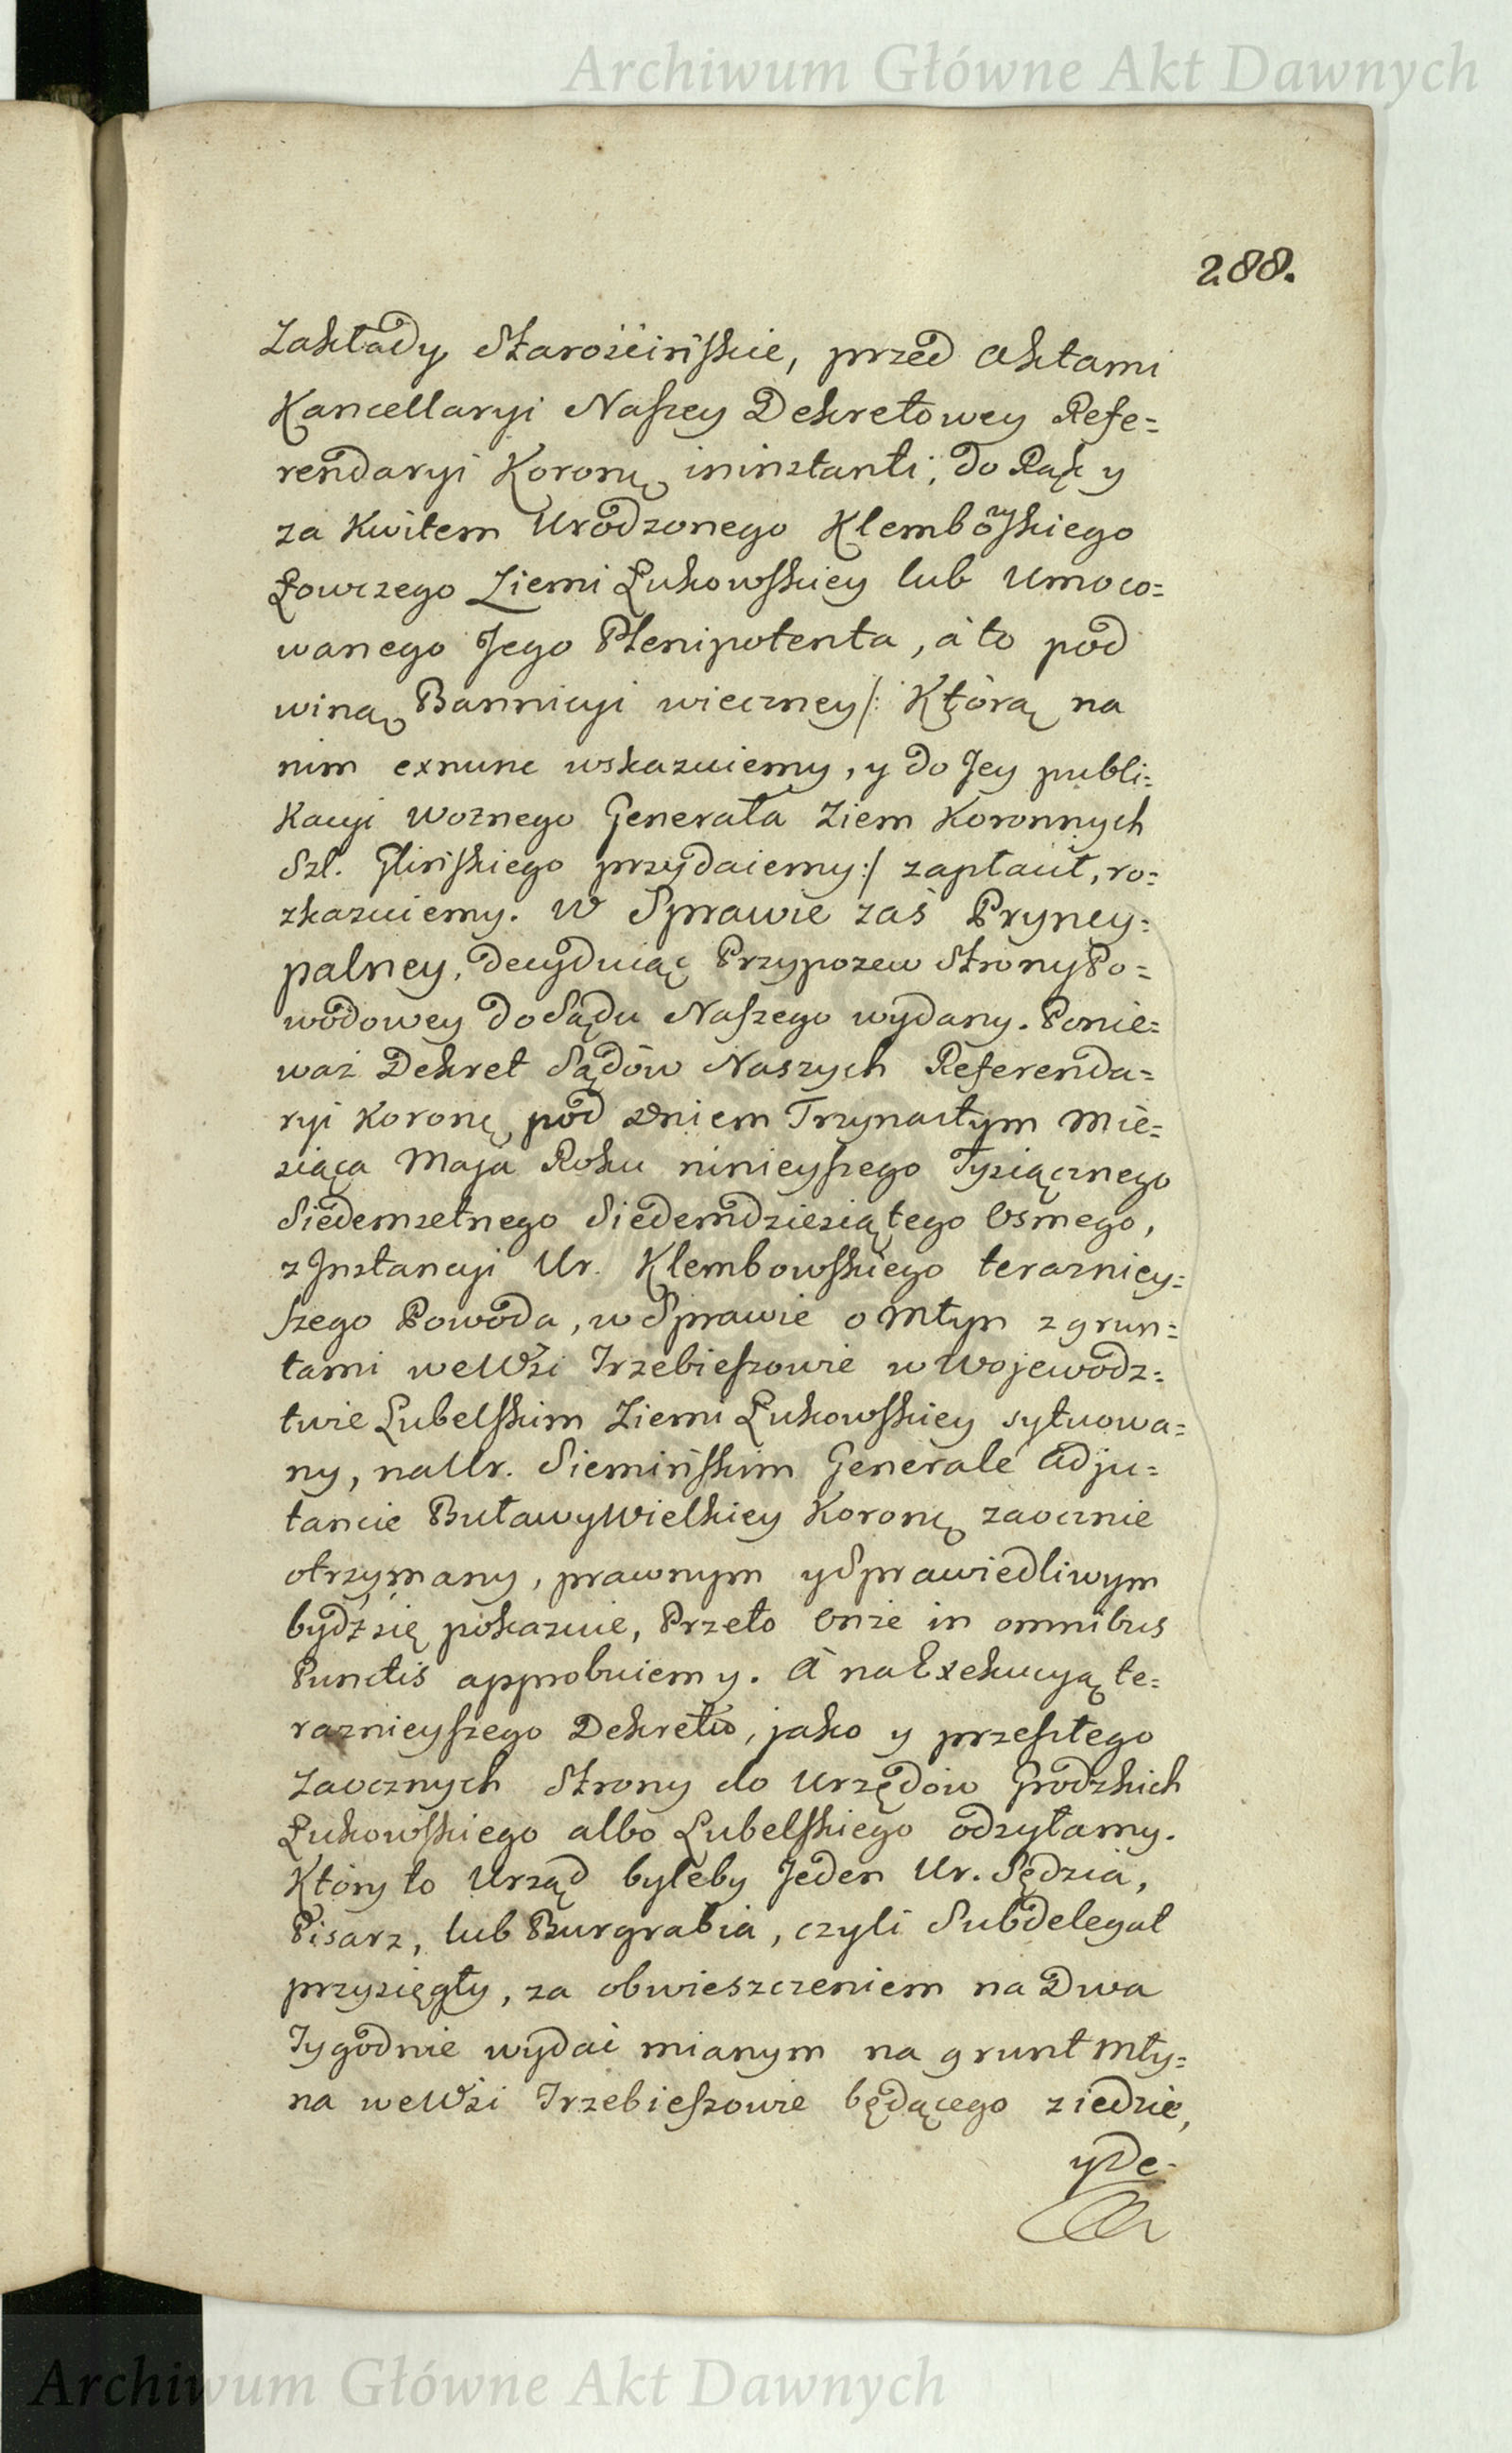 Archiwum Główne Akt Dawnych
288.
Zakłady Starościńskie, przed Aktami
Kancellaryi Naszey Dekretowey Refe=
rendaryi Koronę ininstanti, do Rąk y
za Kwitem Urodzonego Klembowskiego
Łowczego Ziemi Łukowskiey lub Umoco=
wanego Jego Plenipotenta, à to pod
winą Bannicyi wieczney /: Którą na
nim exnunc wskazuiemy, y do Jey publi=
kacyi Woznego Generała Ziem Koronnych
Szl. Glińskiego przydaiemy :/ zapłacił, ro=
zkazuiemy. W Sprawie zaś Pryncy=
palney, decyduiąc Przypozew Strony Po=
wodowey do Sądu Naszego wydany. Ponie=
waż Dekret Sądów Naszych Referenda=
ryi Koronę pod Dniem Trzynastym Mie=
siąca Maja Roku ninieyszego Tysiącznego
Siedemsetnego Siedemdziesiątego Osmego,
z Jnstancyi Ur. Klembowskiego teraźniey=
szego Powoda, w Sprawie o Młyn z grun=
tami we Wsi Trzebieszowie w Wojewodz=
twie Lubelskim Ziemi Łukowskiey sytuowa=
ny, na Ur. Siemińskim Generale Adju=
tancie Buławy Wielkiey Koronę zaocznie
otrzymany, prawnym y Sprawiedliwym
bydź się pokazuie, Przeto Onże in omnibus
Punctis approbuiemy. A na Exekucyą te=
raznieyszego Dekretu, jako y przeszłego
Zaocznych Strony do Urzędów Grodzkich
Łukowskiego albo Lubelskiego odsyłamy.
Który to Urząd byleby Jeden Ur. Sędzia,
Pisarz, lub Burgrabia, czyli Subdelegat
przysięgły, za obwieszczeniem na Dwa
Tygodnie wydać mianym na grunt Mły=
na we Wsi Trzebieszowie będącego ziedzie,
y De-
Archiwum Główne Akt Dawnych